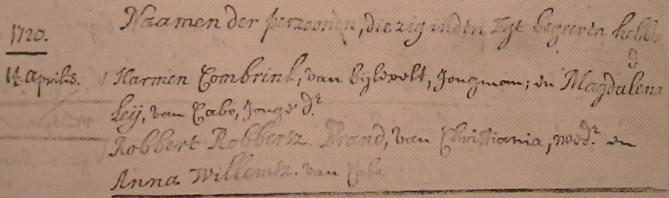 Naamen der perzoonen, die zig in den Egt begeeven hebbe
1720.
14 Aprilis. Harmen Combrink, van Bylevelt, Jongman; en Magdalena
Leij, van Cabo, Jonge dr
Robbert Robbertz. Brand, van Christiania, wedr en
Anna Willemsz. van Cabo.